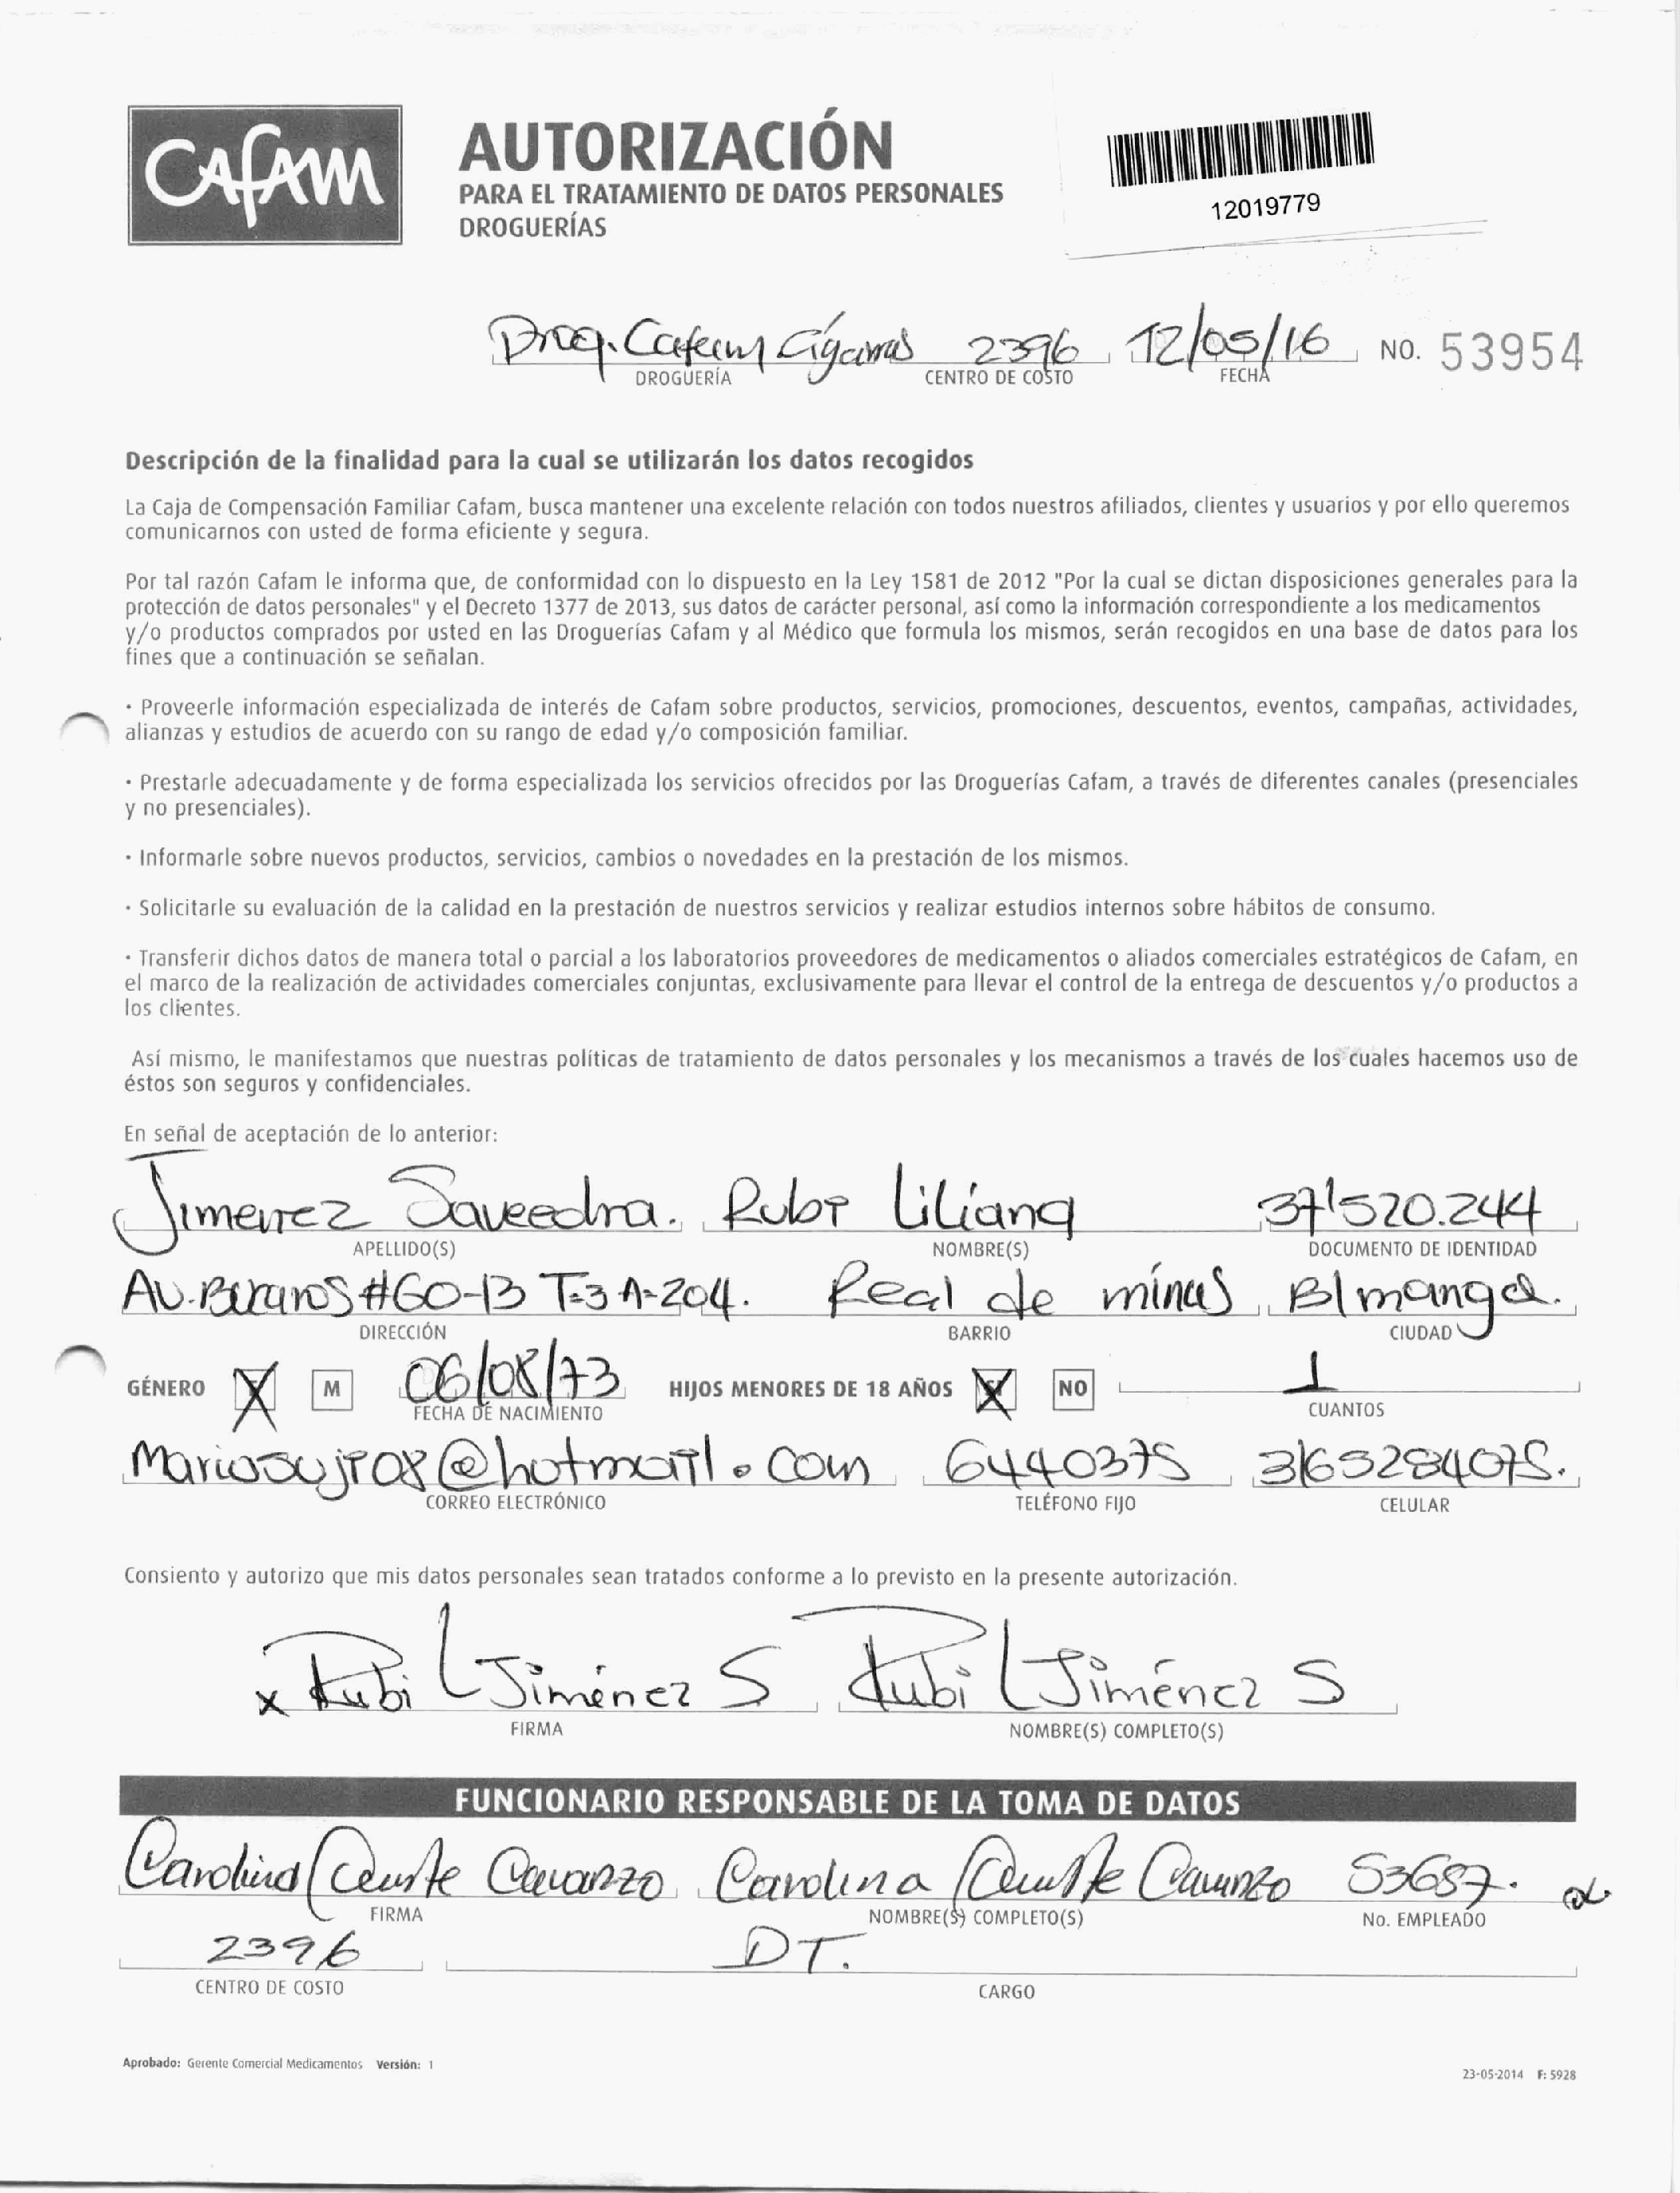 CAFAM
AUTORIZACIÓN
PARA EL TRATAMIENTO DE DATOS PERSONALES
DROGUERÍAS
12019779
Drog. Cafam Cigarras 2396 12/05/16 NO. 53954
DROGUERÍA CENTRO DE COSTO FECHA
Descripción de la finalidad para la cual se utilizarán los datos recogidos
La Caja de Compensación Familiar Cafam, busca mantener una excelente relación con todos nuestros afiliados, clientes y usuarios y por ello queremos
comunicarnos con usted de forma eficiente y segura.
Por tal razón Cafam le informa que, de conformidad con lo dispuesto en la Ley 1581 de 2012 "Por la cual se dictan disposiciones generales para la
protección de datos personales" y el Decreto 1377 de 2013, sus datos de carácter personal, así como la información correspondiente a los medicamentos
y/o productos comprados por usted en las Droguerías Cafam y al Médico que formula los mismos, serán recogidos en una base de datos para los
fines que a continuación se señalan.
· Proveerle información especializada de interés de Cafam sobre productos, servicios, promociones, descuentos, eventos, campañas, actividades,
alianzas y estudios de acuerdo con su rango de edad y/o composición familiar.
· Prestarle adecuadamente y de forma especializada los servicios ofrecidos por las Droguerías Cafam, a través de diferentes canales (presenciales
y no presenciales).
· Informarle sobre nuevos productos, servicios, cambios o novedades en la prestación de los mismos.
· Solicitarle su evaluación de la calidad en la prestación de nuestros servicios y realizar estudios internos sobre hábitos de consumo.
· Transferir dichos datos de manera total o parcial a los laboratorios proveedores de medicamentos o aliados comerciales estratégicos de Cafam, en
el marco de la realización de actividades comerciales conjuntas, exclusivamente para llevar el control de la entrega de descuentos y/o productos a
los clientes.
Así mismo, le manifestamos que nuestras políticas de tratamiento de datos personales y los mecanismos a través de los cuales hacemos uso de
éstos son seguros y confidenciales.
En señal de aceptación de lo anterior:
Jimenez Saveedra. Rubi Liliana 37'520.244
APELLIDO(S) NOMBRE(S) DOCUMENTO DE IDENTIDAD
AV. #60-13 T-3 A-204. Real de minas B/manga.
DIRECCIÓN BARRIO CIUDAD
GÉNERO X M 06/08/73 HIJOS MENORES DE 18 AÑOS X NO 1
FECHA DE NACIMIENTO CUANTOS
@hotmail.com 6440375 3165284075.
CORREO ELECTRÓNICO TELÉFONO FIJO CELULAR
Consiento y autorizo que mis datos personales sean tratados conforme a lo previsto en la presente autorización.
x Rubi L Jiménez S Rubi L Jiménez S
FIRMA NOMBRE(S) COMPLETO(S)
FUNCIONARIO RESPONSABLE DE LA TOMA DE DATOS
Carolina Carolina 53687.
FIRMA NOMBRE(S) COMPLETO(S) No. EMPLEADO
2396 DT.
CENTRO DE COSTO CARGO
Aprobado: Gerente Comercial Medicamentos Versión: 1
23-05-2014 F: 5928